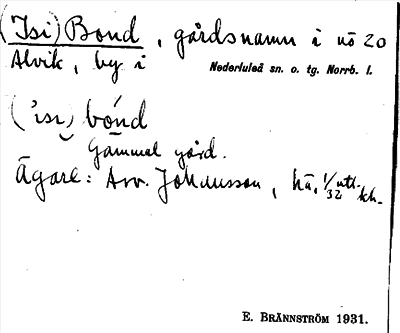 (Isi) Bond, gårdsnamn i nö 20
Alvik, by i Nederluleå sn. o. tg. Norrb. l.
('isi) bónd
Gammal gård.
Ägare: Arv. Johansson, hä, 1/32 mtl. kh.
E. BRÄNNSTRÖM 1931.